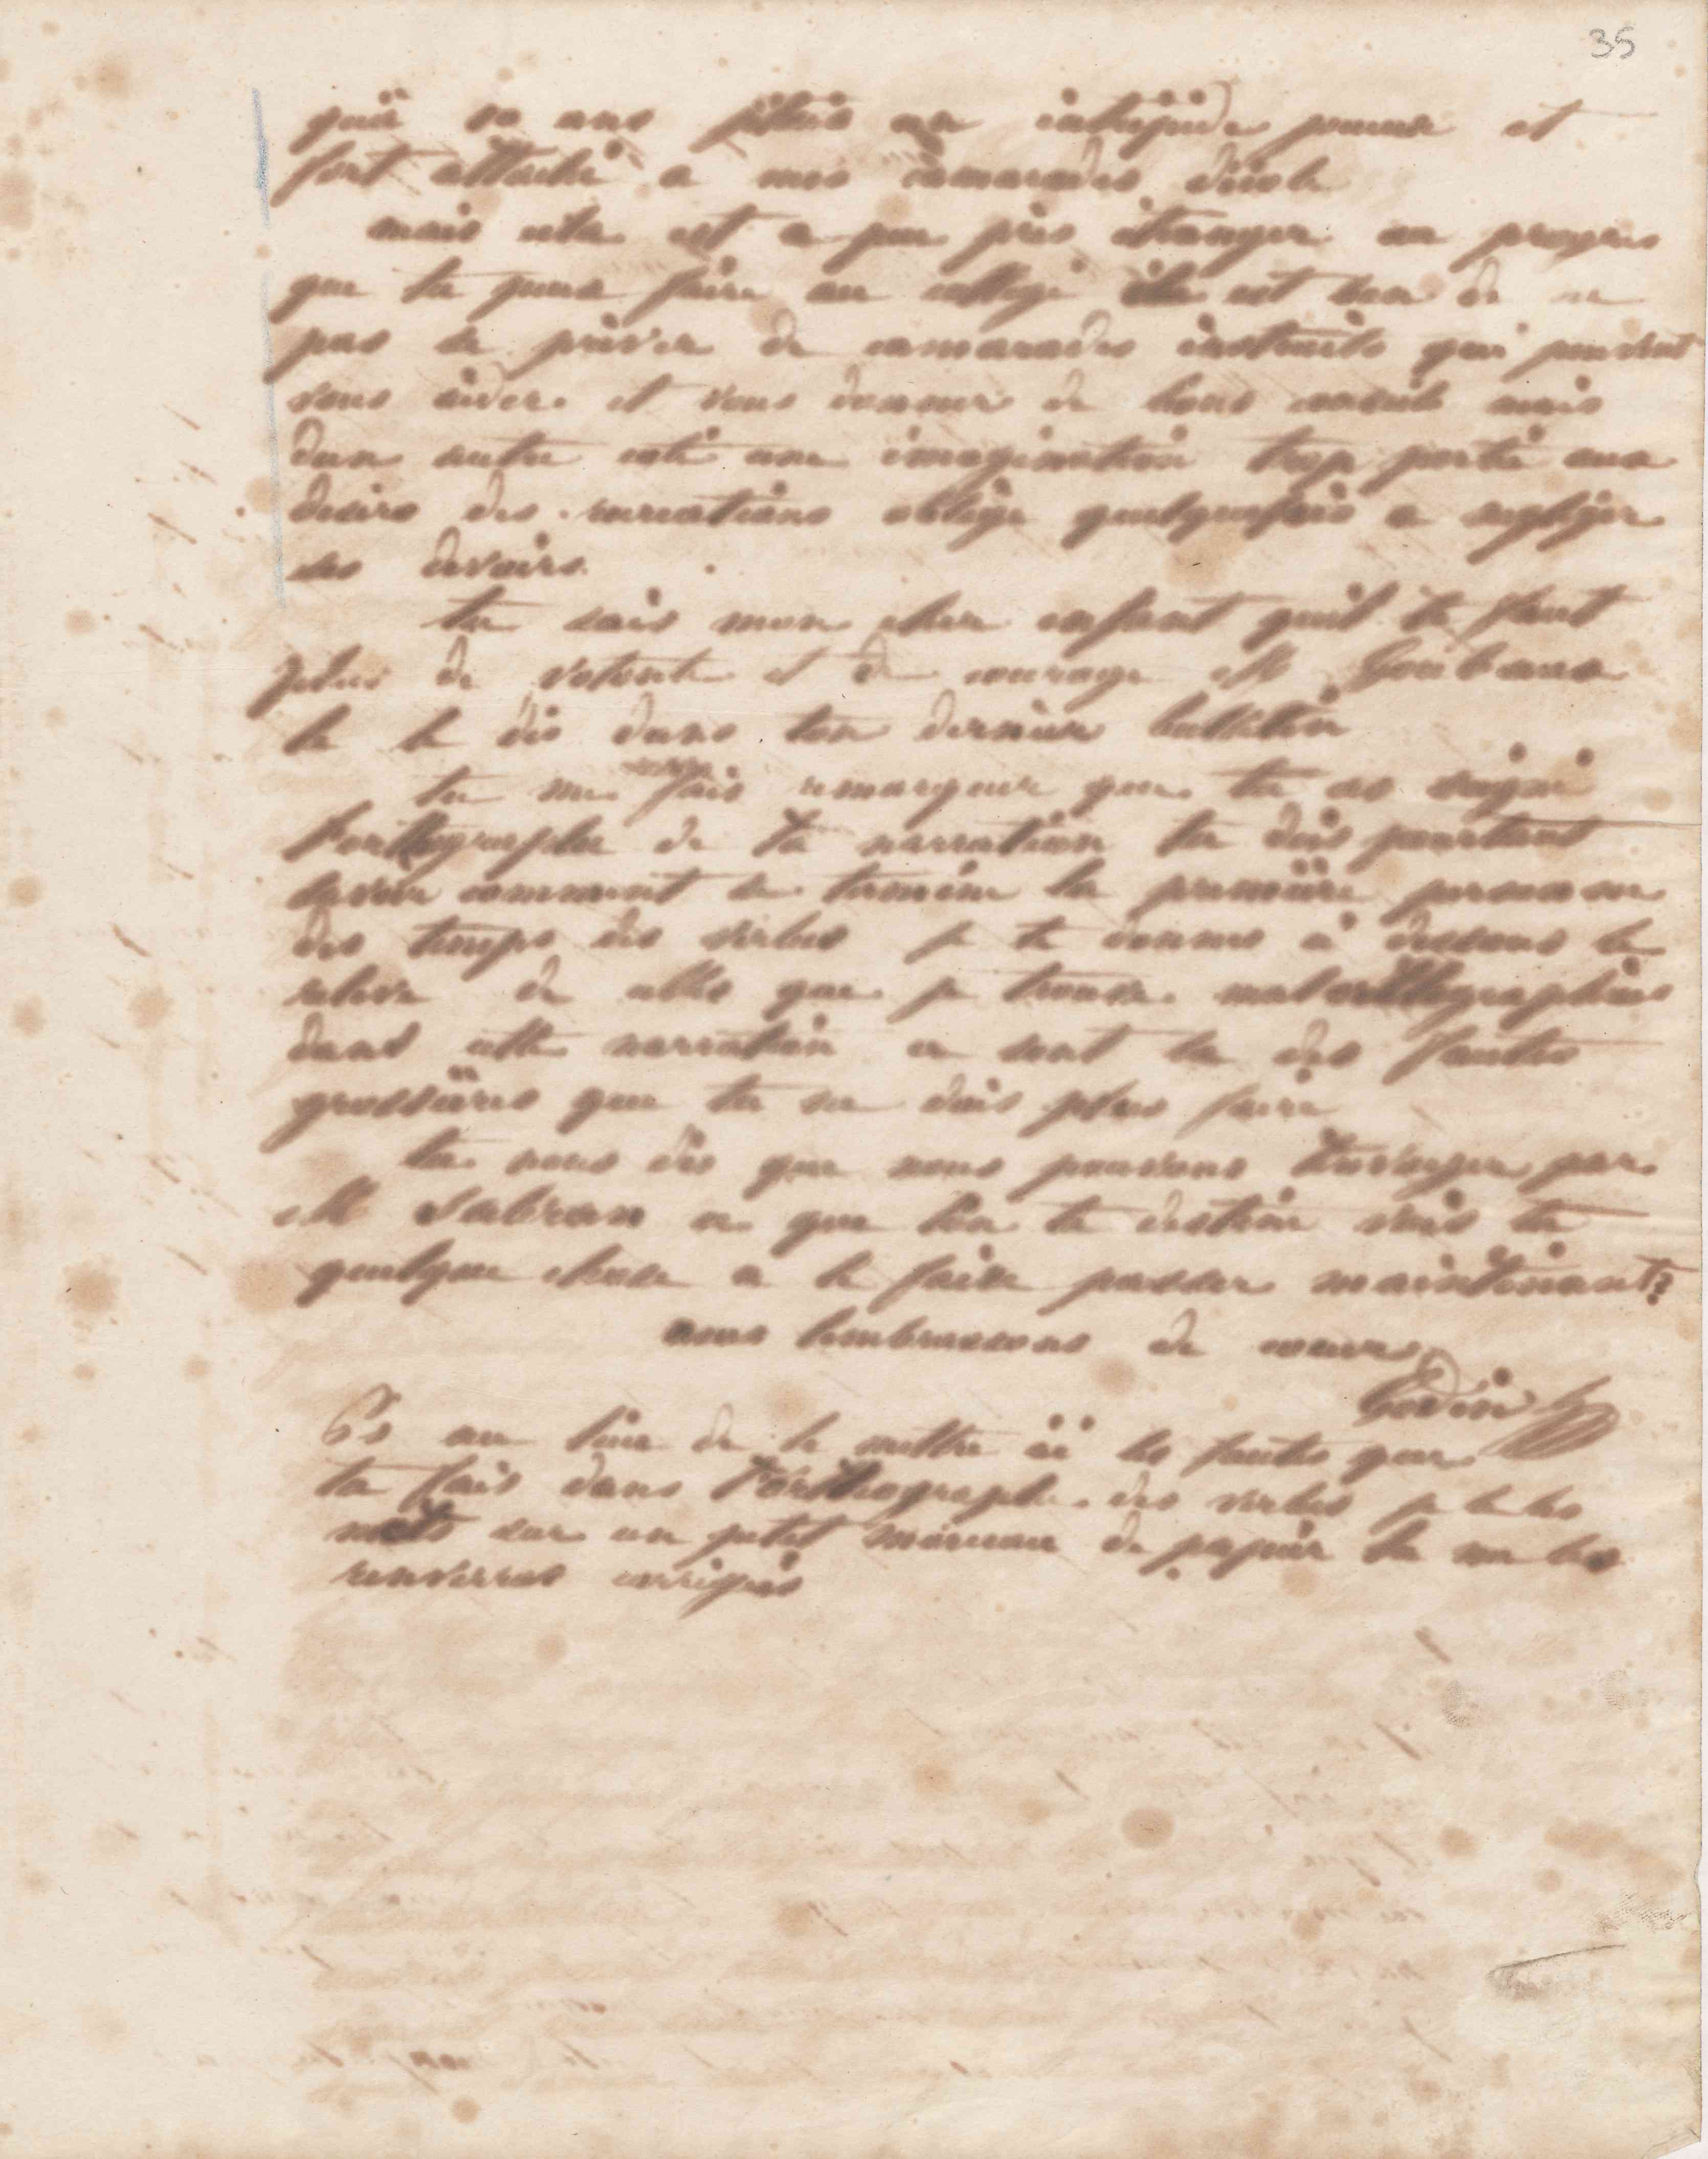 35
qu'à 10 ans j'étais un intrépide joueur et
fort attaché a mes camarades d'école
mais cela est a peu près étranger au progres
que tu peux faire au college il est bon de ne
pas se priver de camarades instruits qui peuvent
vous aider et vous donner de bons conseils mais
d'un autre coté une imagination trop portée aux
desirs des recreations oblige quelquefois a negliger
ses devoirs.
tu sais mon cher enfant qu'il te faut
plus de volonté et de courage M Goubaux
te le dis dans ton dernier bulletin
tu me fais remarquer que tu as soigné
l'orthographe de ta narration tu dois pourtant
savoir comment se termine la première personne
des temps des verbes je te donne ci dessous le
releve de celles que je trouve mal orthographiées
dans cette narration ce sont la des fautes
grossières que tu ne dois plus faire
tu nous dis que nous pouvons t'envoyer par
M Sabran ce que l'on te destine vois tu
quelque chose a te faire passer maintenant?
nous t'embrassons de coeur
Godin
Ps au lieu de te mettre ici les fautes que
tu fais dans l'orthographe des verbes je te les
mets sur un petit morceau de papier tu me les
renverras corrigées